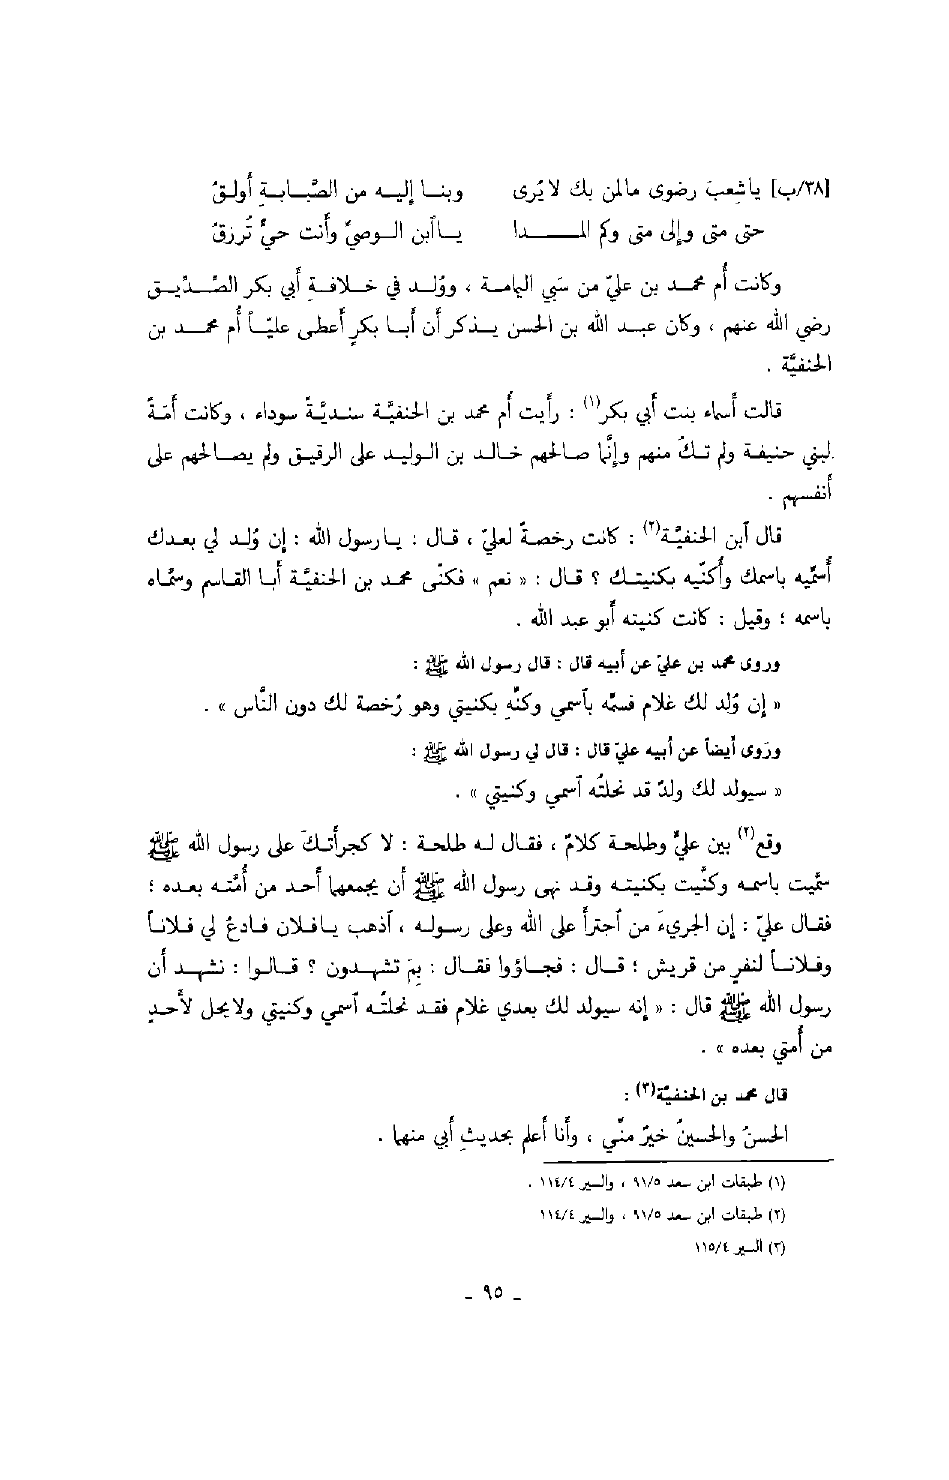 [٣٨/ب] ياشِعبَ رضوى مالمن بك لا يُرى وبنا إليه من الصَّبابةِ أَولقُ
حتى متى وإلى متى وكم المدا ياٱبن الوصيِّ وأَنت حيٌّ تُرزقُ
وكانت أُم محمد بن عليّ من سَبي اليمامة ، ووُلد في خلافةِ أبي بكر الصِّدِّيق
رضي الله عنهم ، وكان عبد الله بن الحسن يذكر أن أبا بكرٍ أَعطى عليّاً أُم محمد بن
الحنفيَّة .
قالت أَسماء بنت أَبي بكر(١) : رأَيت أُم محمد بن الحنفيَّة سنديَّةً سوداء ، وكانت أَمَةً
لبني حنيفة ولم تكُ منهم وإنَّما صالحهم خالد بن الوليد على الرقيق ولم يصالحهم على
أَنفسهم .
قال ٱبن الحنفيَّة(٢) : كانت رخصةً لعليّ ، قال : يارسول الله : إن وُلد لي بعدك
أُسمِّيه باسمك وأُكنِّيه بكنيتك ؟ قال : « نعم » فكنّى محمد بن الحنفيَّة أَبا القاسم وسمَّاه
باسمه ؛ وقيل : كانت كنيته أَبو عبد الله .
وروى محمد بن عليّ عن أبيه قال : قال رسول الله ﷺ :
« إن وُلد لك غلام فسمِّه بٱسمي وكنِّه بكنيتي وهو رُخصة لك دون النَّاس » .
ورَوى أَيضاً عن أبيه عليّ قال : قال لي رسول الله ﷺ :
« سيولد لك ولدٌ قد نحلتُه ٱسمي وكنيتي » .
وقع(٢) بين عليٍّ وطلحة كلامٌ ، فقال له طلحة : لا كجرأَتكَ على رسول الله ﷺ
سمَّيت باسمه وكنَّيت بكنيته وقد نهى رسول الله ﷺ أَن يجمعهما أَحد من أُمَّته بعده ؛
فقال عليّ : إن الجريءَ من ٱجترأَ على الله وعلى رسوله ، ٱذهب يافلان فادعُ لي فلاناً
وفلاناً لنفرٍ من قريش ؛ قال : فجاؤوا فقال : بِمَ تشهدون ؟ قالوا : نشهد أَن
رسول الله ﷺ قال : « إنه سيولد لك بعدي غلام فقد نحلتُه ٱسمي وكنيتي ولا يحل لأَحدٍ
من أُمتي بعده » .
قال محمد بن الحنفيّة(٣) :
الحسنُ والحسينُ خيرٌ منِّي ، وأَنا أَعلم بحديثِ أَبي منهما .
(١) طبقات ابن سعد ٩١/٥ ، والسير ١١٤/٤ .
(٢) طبقات ابن سعد ٩١/٥ ، والسير ١١٤/٤
(٣) السير ١١٥/٤
ـ ٩٥ ـ